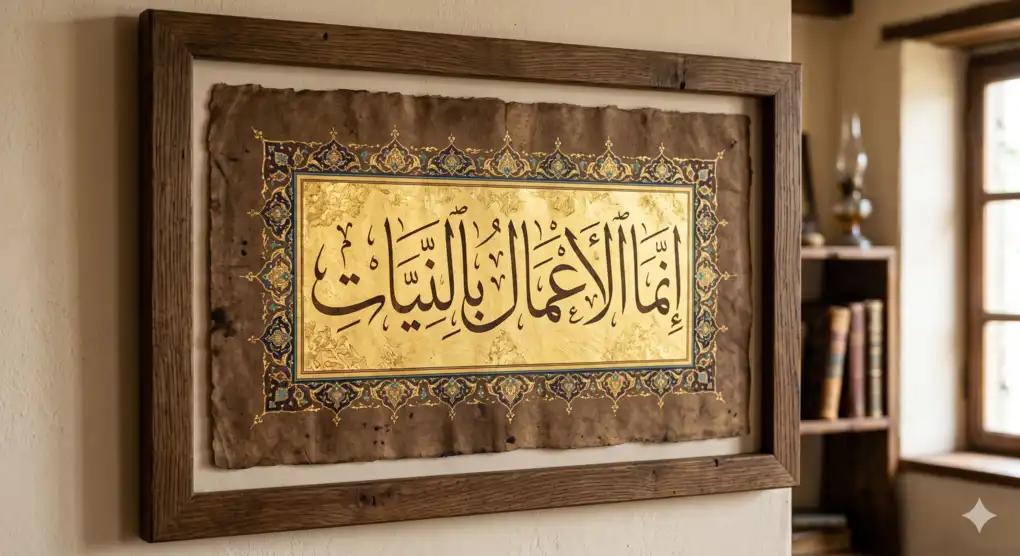 إِنَّمَا ٱلْأَعْمَالُ بِٱلنِّيَّاتِ